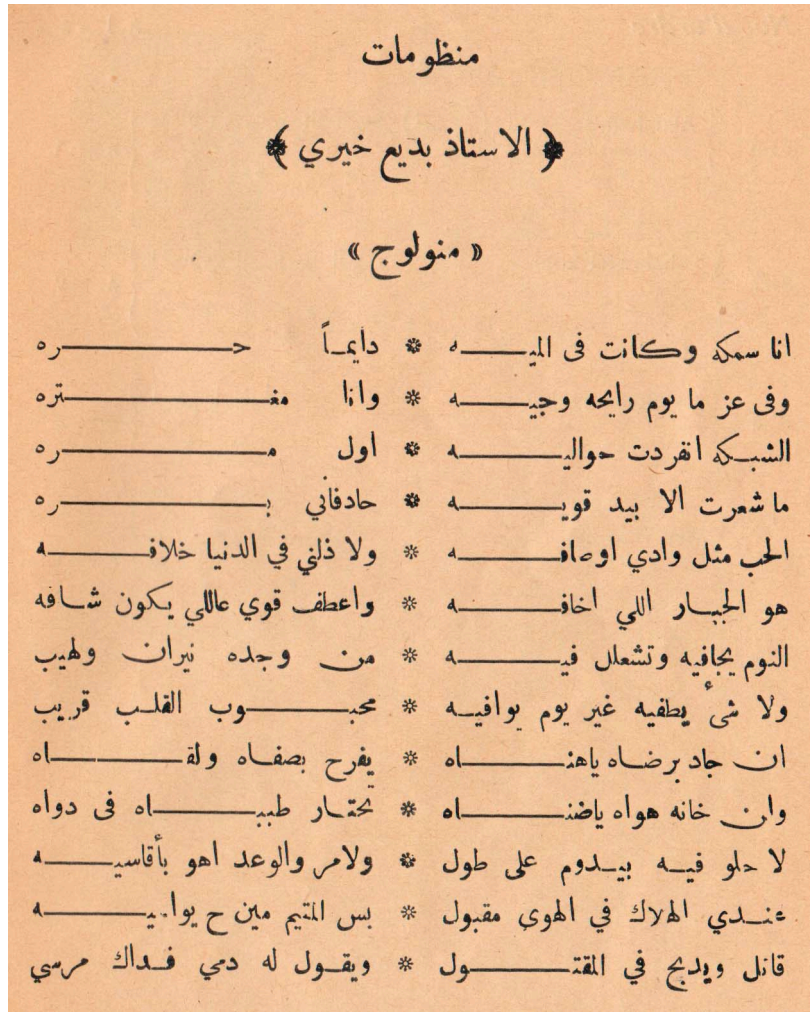 منظومات
﴿ الاستاذ بديع خيري ﴾
« منولوج »
انا سمكه وكانت فى الميـــه * دايمـاً حـــره
وفى عز ما يوم رايحه وجيـــه * وانا مغـــتره
الشبـكه اتفردت حواليـــه * اول مـــره
ما شعرت الا بيد قويـــه * حادفاني بـــره
الحب مثل وادي اوصافـــه * ولا ذلني في الدنيا خلافـــه
هو الجبـار اللي اخافـــه * واعطف قوي عاللي يكون شـافه
النوم يجافيه وتشعلل فيـــه * من وجده نيران ولهيب
ولا شئ يطفيه غير يوم يوافيـه * محبـــوب القلب قريب
ان جاد برضـاه ياهنـــاه * يفرح بصفـاه ولقـــاه
وان خانه هواه ياضنـــاه * تحتـار طببـــاه فى دواه
لا حلو فيـه بيـدوم على طول * ولامر والوعد اهو بأقاسيـــه
عنـدي الهلاك في الهوى مقبول * بس المتيم مين ح يواسيـــه
قاتل ويدبح في المقتـــول * ويقـول له دمي فـداك مرسي